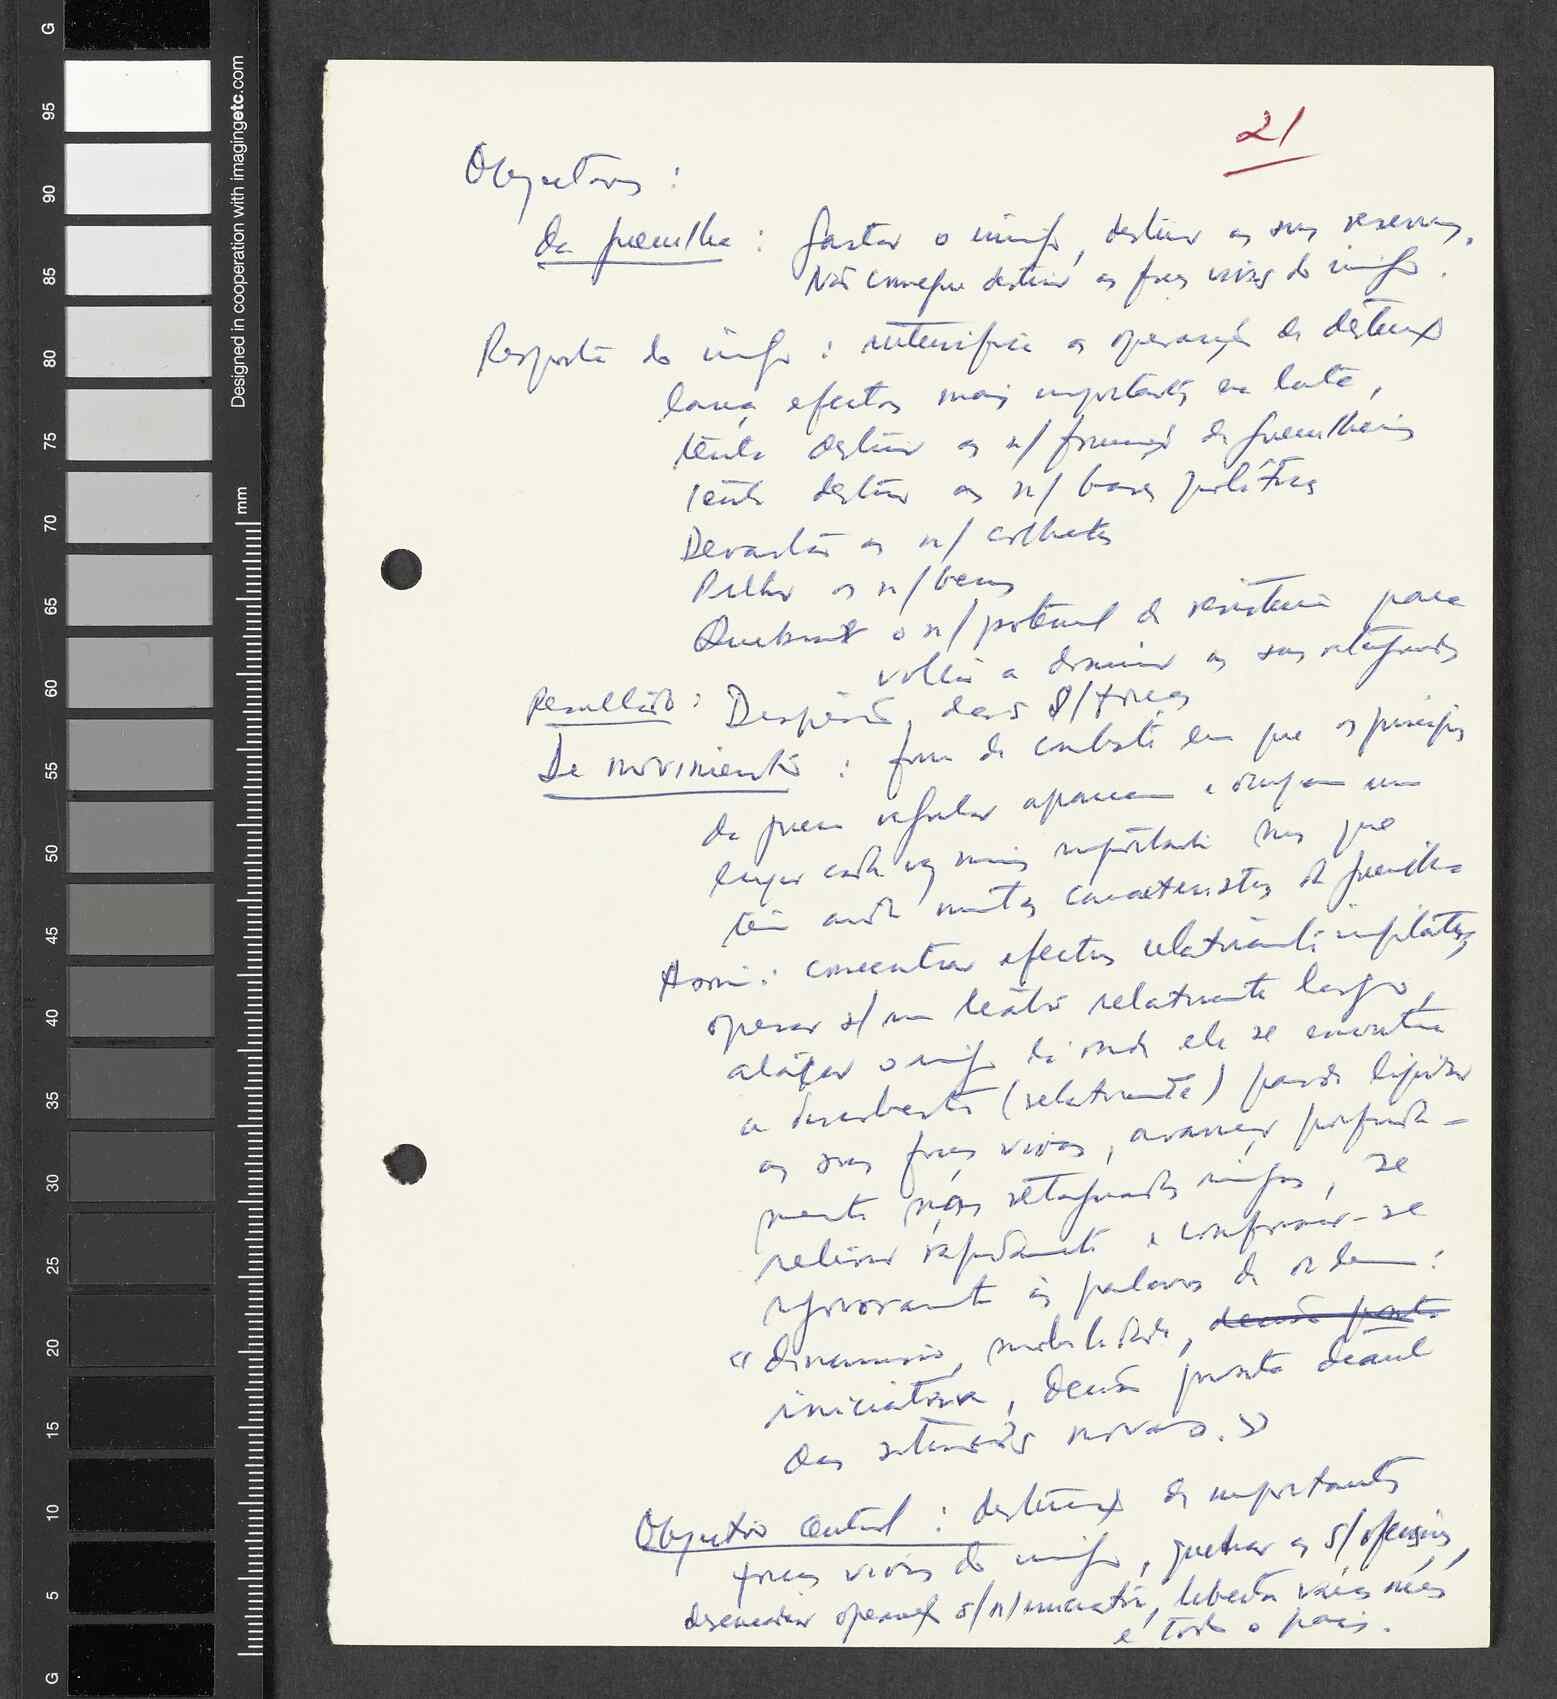 21
Objectivos :
da guerrilha : gastar o inimigo, destruir as suas reservas.
Não consegue destruir as forças vivas do inimigo.
Resposta do inimigo : intensifica as operações de
lança efectivos mais importantes na luta,
tenta destruir as n/ formações de guerrilheiros
tenta destruir as n/ bases políticas
Devastar as n/ colheitas
Pilhar os n/ bens
Quebrar o n/ potencial de resistência para
voltar a dominar as suas retaguardas
Resultado : Dispersão das s/ forças
De movimento : forma de combate em que os princípios
da guerra regular aparecem e ocupam um
lugar cada vez mais importante mas que
tem ainda muitas características da guerrilha
Assim : concentrar efectivos relativamente importantes,
operar s/ um teatro relativamente largo,
atacar o inimigo lá onde ele se encontra
a descoberto (relativamente) para liquidar
as suas forças vivas, avançar profunda-
mente nas retaguardas inimigas, se
retirar rapidamente e conformar-se
rigorosamente às palavras de ordem :
"dinamismo, mobilidade, decisão pronta
iniciativa, decisão pronta diante
das situações novas."
Objectivo central : destruição de importantes
forças vivas do inimigo, quebrar as s/ ofensivas,
desencadear operações s/ n/ iniciativa, libertar várias regiões
e todo o país.
Designed in cooperation with imagingetc.com
mm
G
95
90
85
80
75
70
65
60
55
50
45
40
35
30
25
20
15
10
5
G